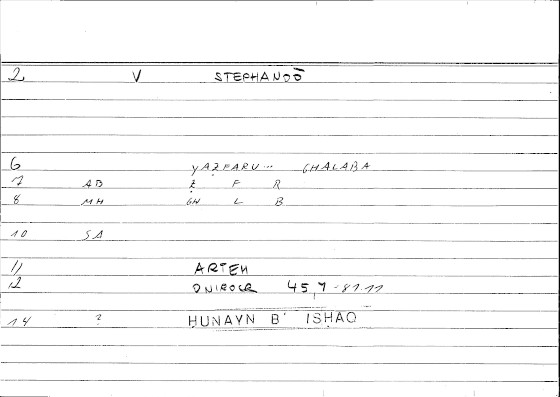 2 V STEPHANOÓ
6 YAẒFARU... GHALABA
7 AB Ẓ F R
8 MH GH L B
10 SA
11 ARTEM
12 ONIROCR 45,7-81.11
14 ? HUNAYN B' ISḤAQ